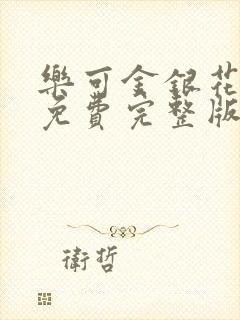 樂可金銀花
免費完整版
衛哲